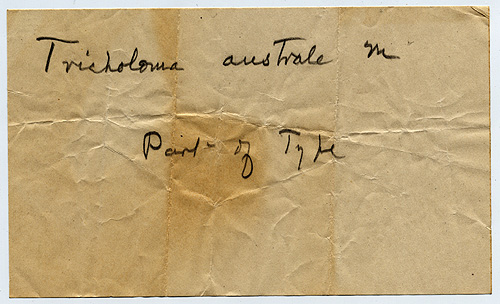 Tricholoma australe m
Part of Type